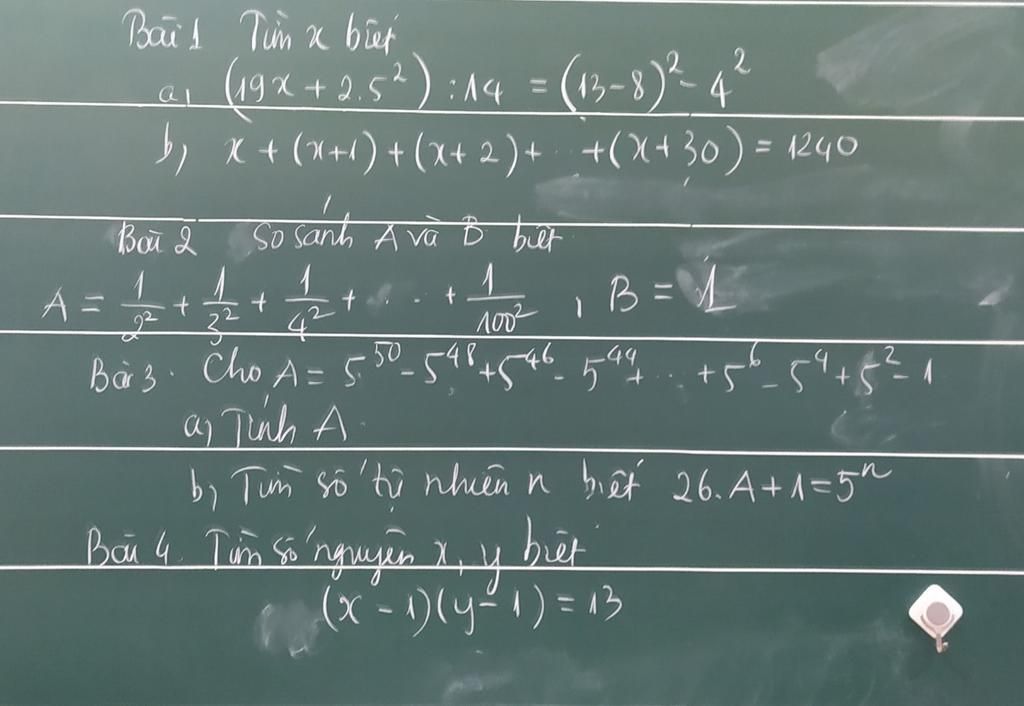 Bài 1 Tìm x biết
a, (19x + 2.5²) : 14 = (13-8)² - 4²
b, x + (x+1) + (x+2) + ... + (x+30) = 1240
Bài 2 So sánh A và B biết
A = 1/2² + 1/3² + 1/4² + .... + 1/100² , B = 1
Bài 3. Cho A = 5⁵⁰ - 5⁴⁸ + 5⁴⁶ - 5⁴⁴ + ... + 5⁶ - 5⁴ + 5² - 1
a, Tính A.
b, Tìm số tự nhiên n biết 26.A + 1 = 5ⁿ
Bài 4. Tìm số nguyên x, y biết
(x - 1)(y - 1) = 13